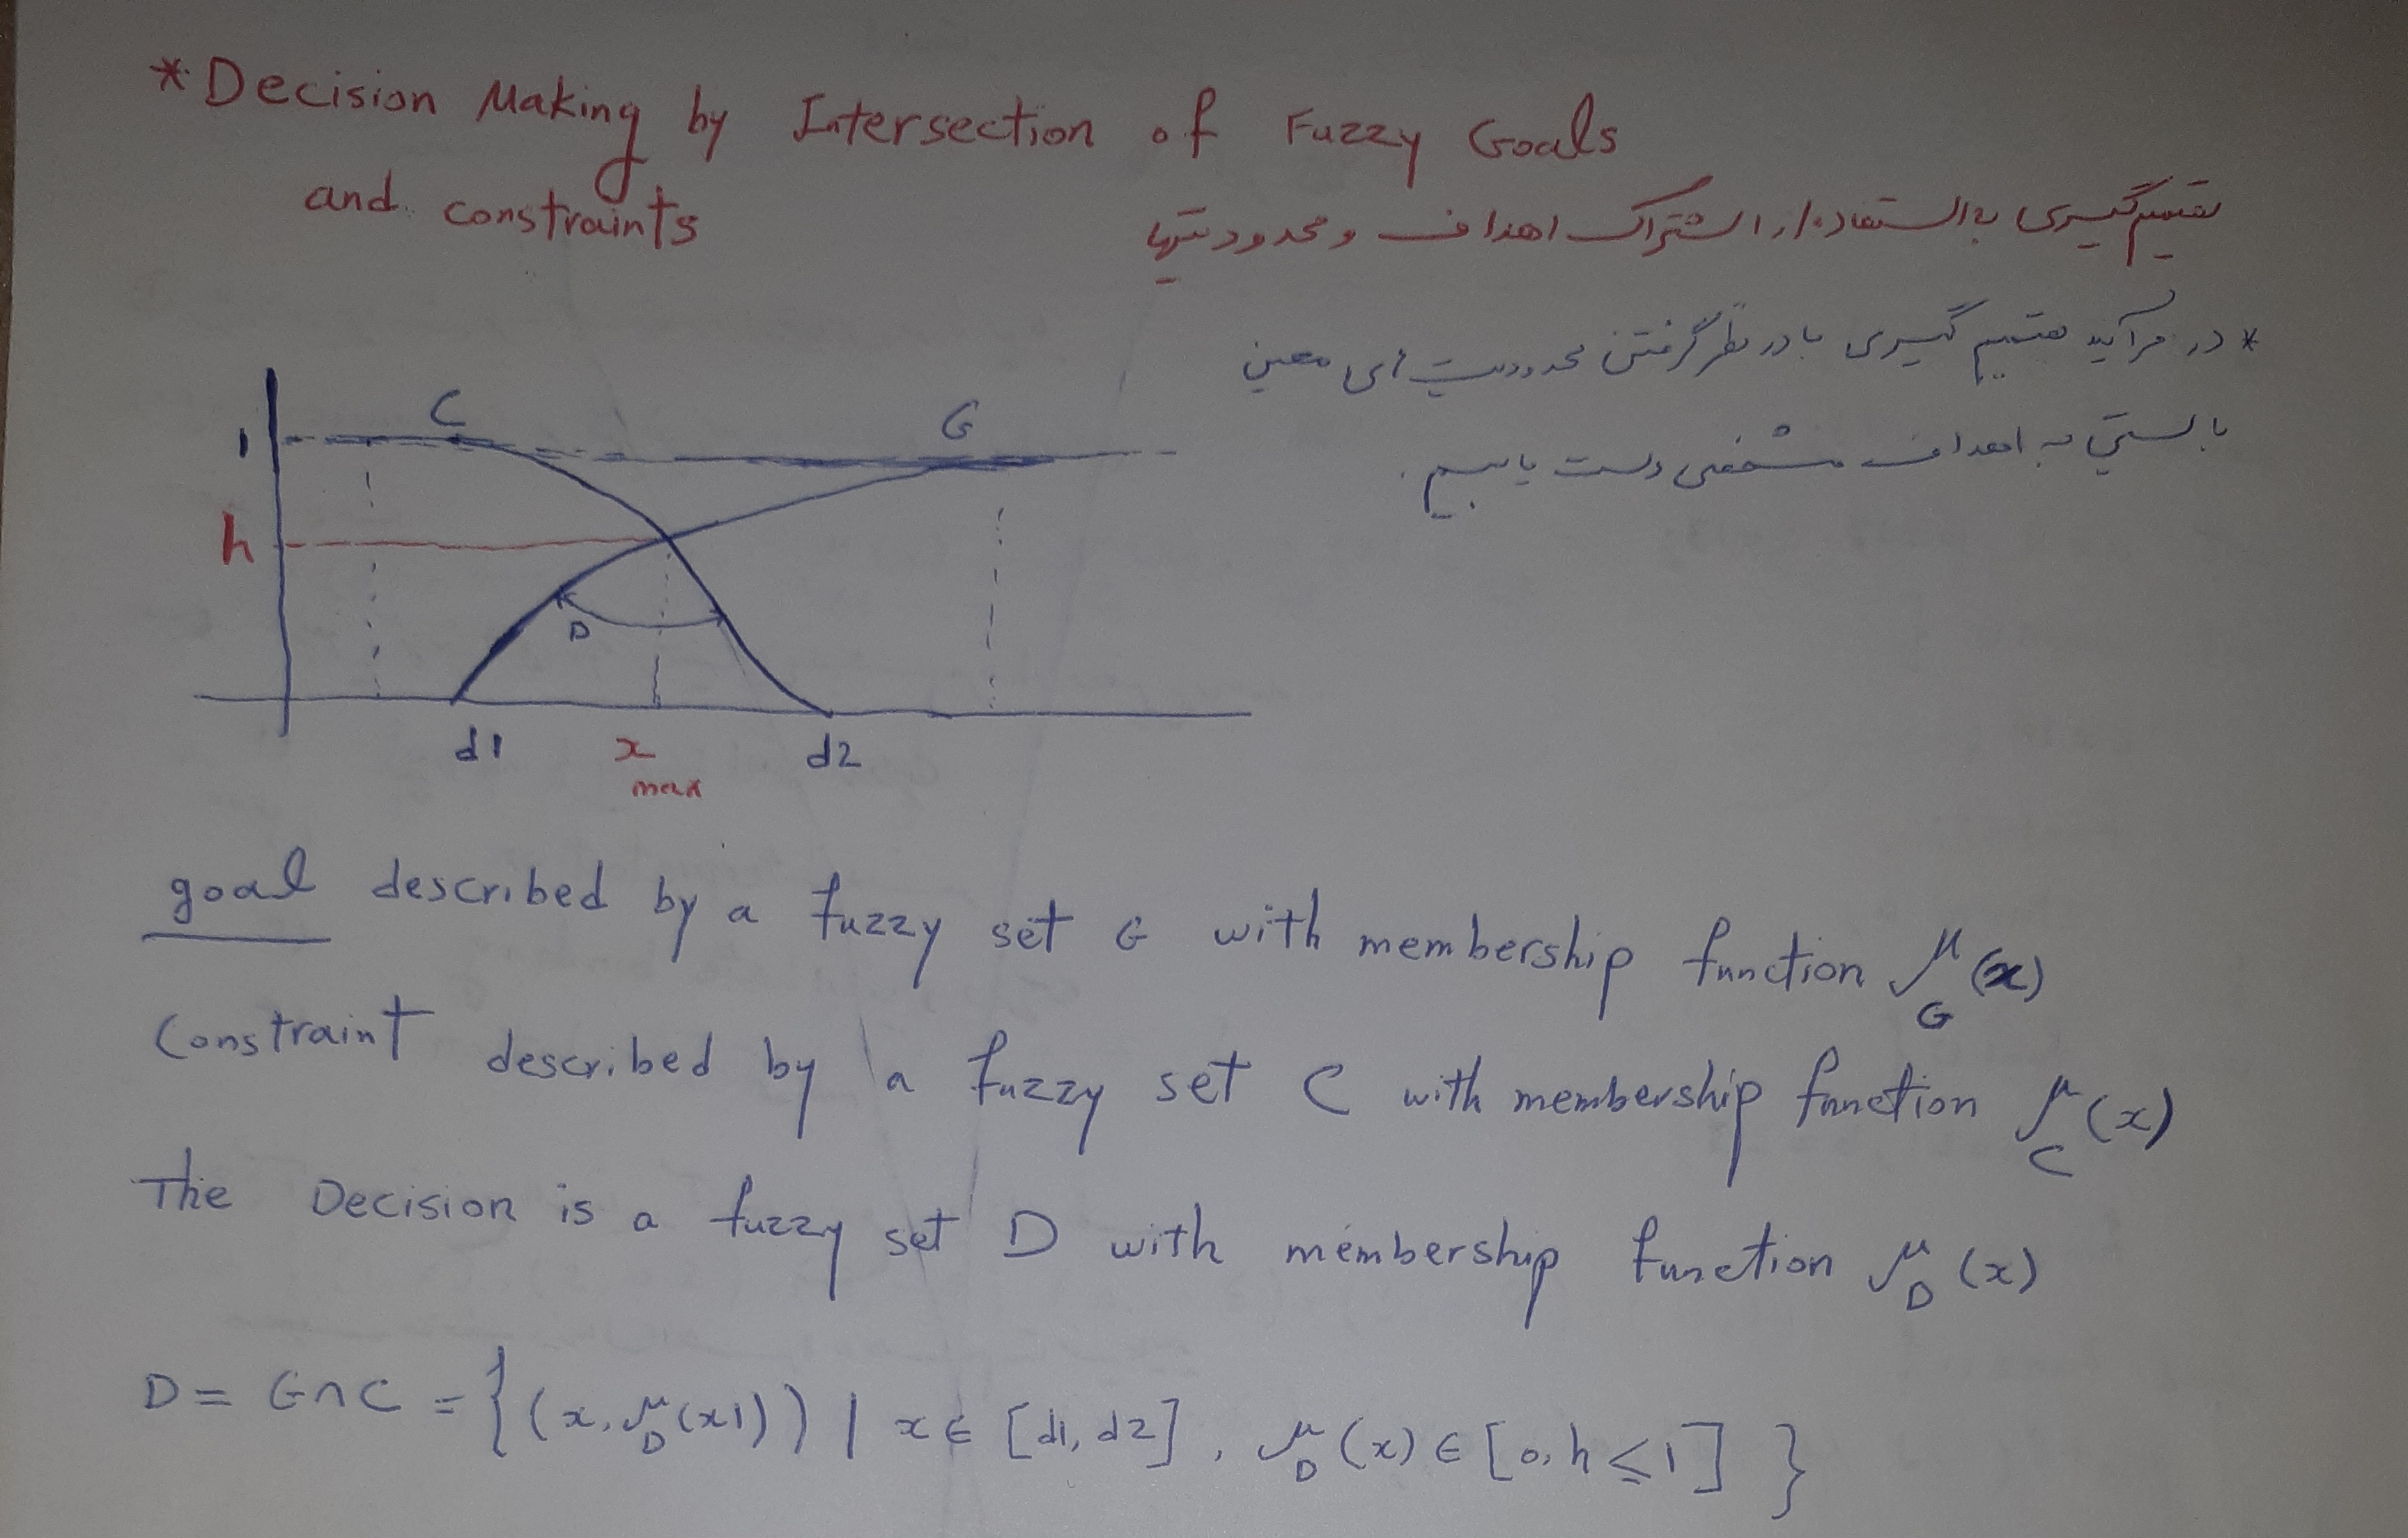 * Decision Making by Intersection of Fuzzy Goals
and constraints
تصمیم‌گیری با استفاده از اشتراک اهداف و محدودیتها
* در فرآیند تصمیم گیری با در نظر گرفتن محدودیت های معین
بایستی به اهداف مشخصی دست یابیم.
C
G
1
h
D
d1
x max
d2
goal described by a fuzzy set G with membership function μ_G(x)
Constraint described by a fuzzy set C with membership function μ_C(x)
The Decision is a fuzzy set D with membership function μ_D(x)
D = G∩C = {(x, μ_D(x1)) | x ∈ [d1, d2], μ_D(x) ∈ [0, h ≤ 1] }